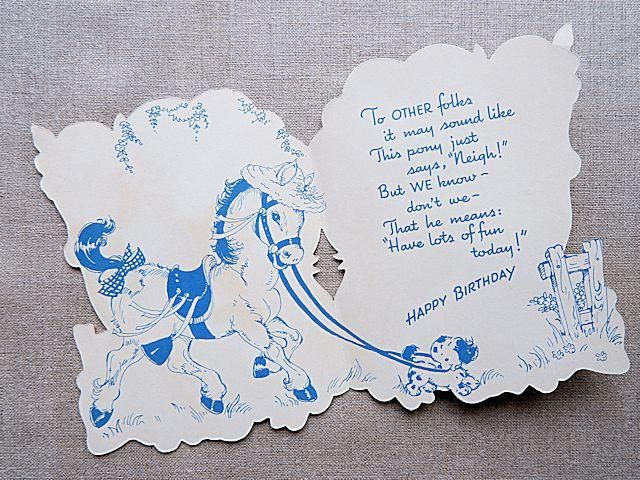 To OTHER folks
it may sound like
This pony just
says, "Neigh!"
But WE know-
don't we-
That he means:
"Have lots of fun
today!"
HAPPY BIRTHDAY